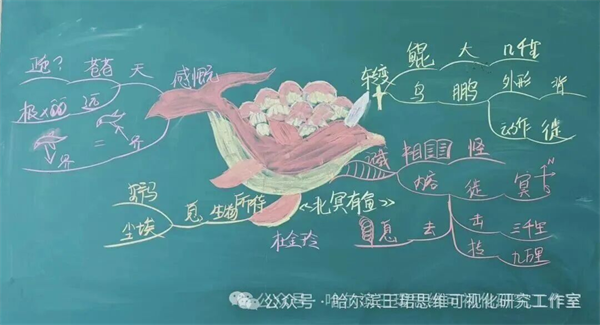 《北冥有鱼》
杜金玲
转变
鲲 大 几千里
鸟 鹏 外形 背
动作 徙
相 怪
徙 冥 N
击 三千里
抟 九万里
息 去
野马
尘埃
息 生物 所有
感慨
天 苍苍 正色?
远 极
界 = 界
公众号·哈尔滨王珺思维可视化研究工作室